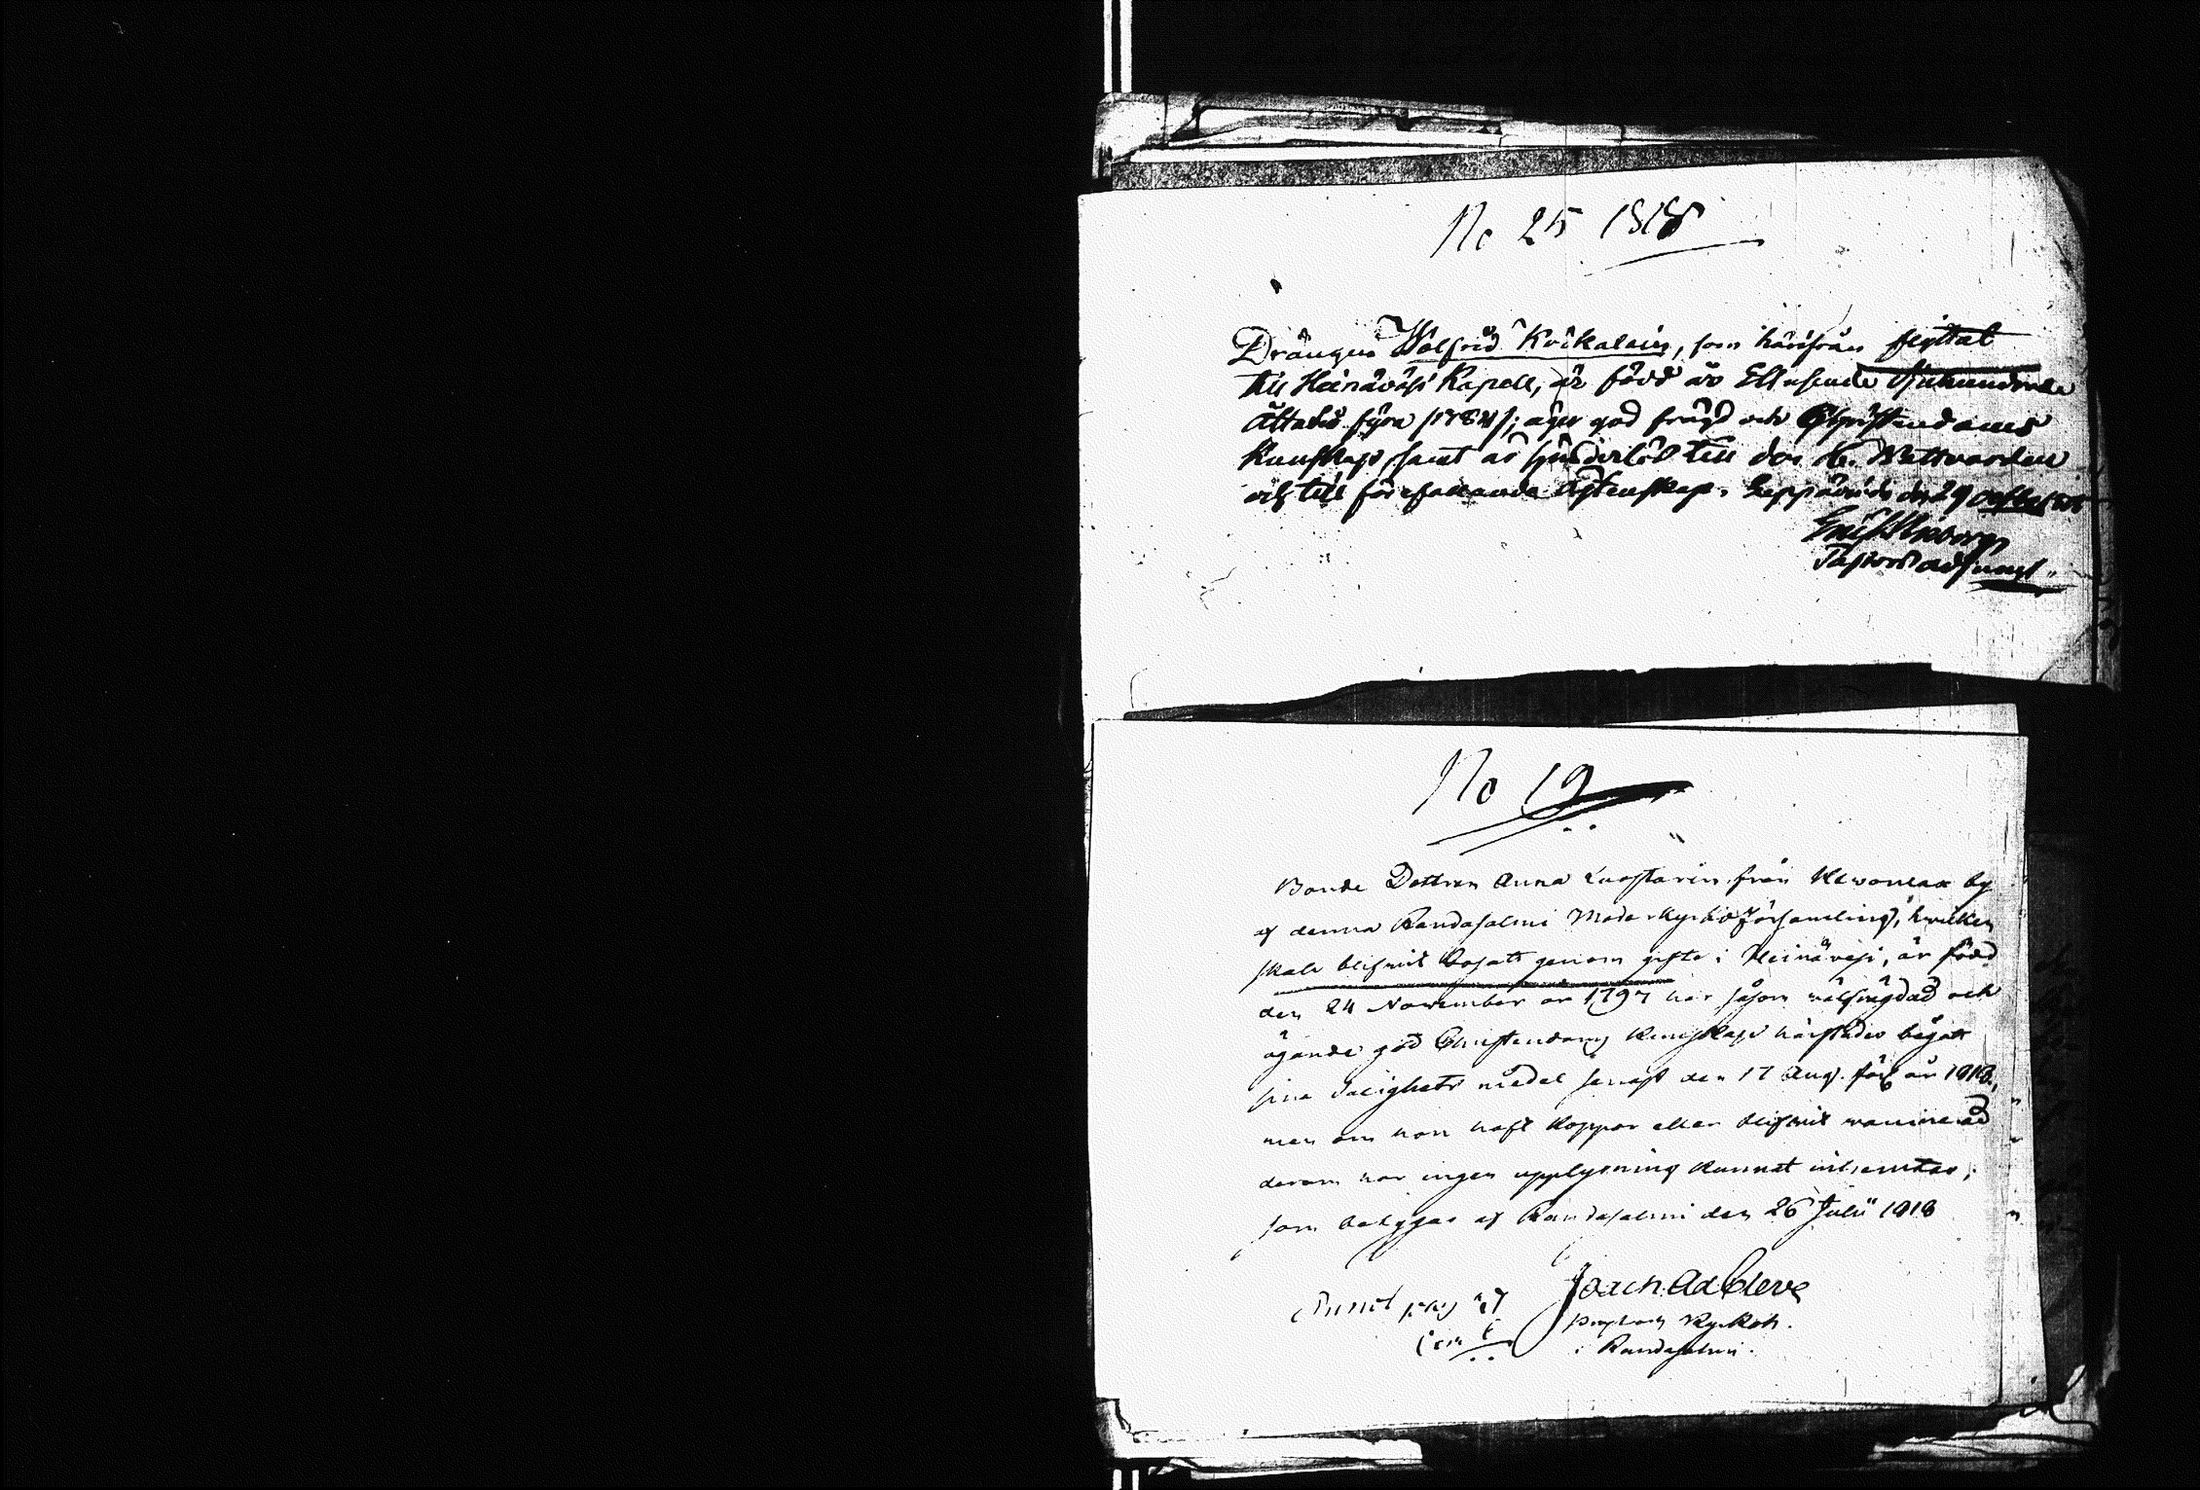 No 25 1818
Drängen Wolfrid Kåikalain, som härifrån flyttat
till Heinävesi Kapell, är född år Ett tusende Sjuhundrade
Åttatio fyra /1784/; äger god frägd och Christendoms
Kunskap, samt är hinderlös till den H. Nattvarden
och till förefallande Ägtenskap. Leppävirta den 29
Pastors adjunct.
No 19
Bonde Dottren Anna Luostarin från by
af denna Randasalmi Moderkyrko Församling, hvilken
skall blifwit bosatt genom gifte i Heinävesi, är född
den 24 November år 1797 har såsom wälfrägdad och
ägande god Christendoms Kunskap härstädes begått
sina Salighets medel senast den 17 Aug. förl. år 1818,
men om hon haft Koppor eller blifwit vaccinerad
derom har ingen upplysning kunnat inhemtas;
som betygas af Randasalmi den 26 Julii 1818
Joach. Ad. Cleve
Prost och Kyrkoh.
i Randasalmi.